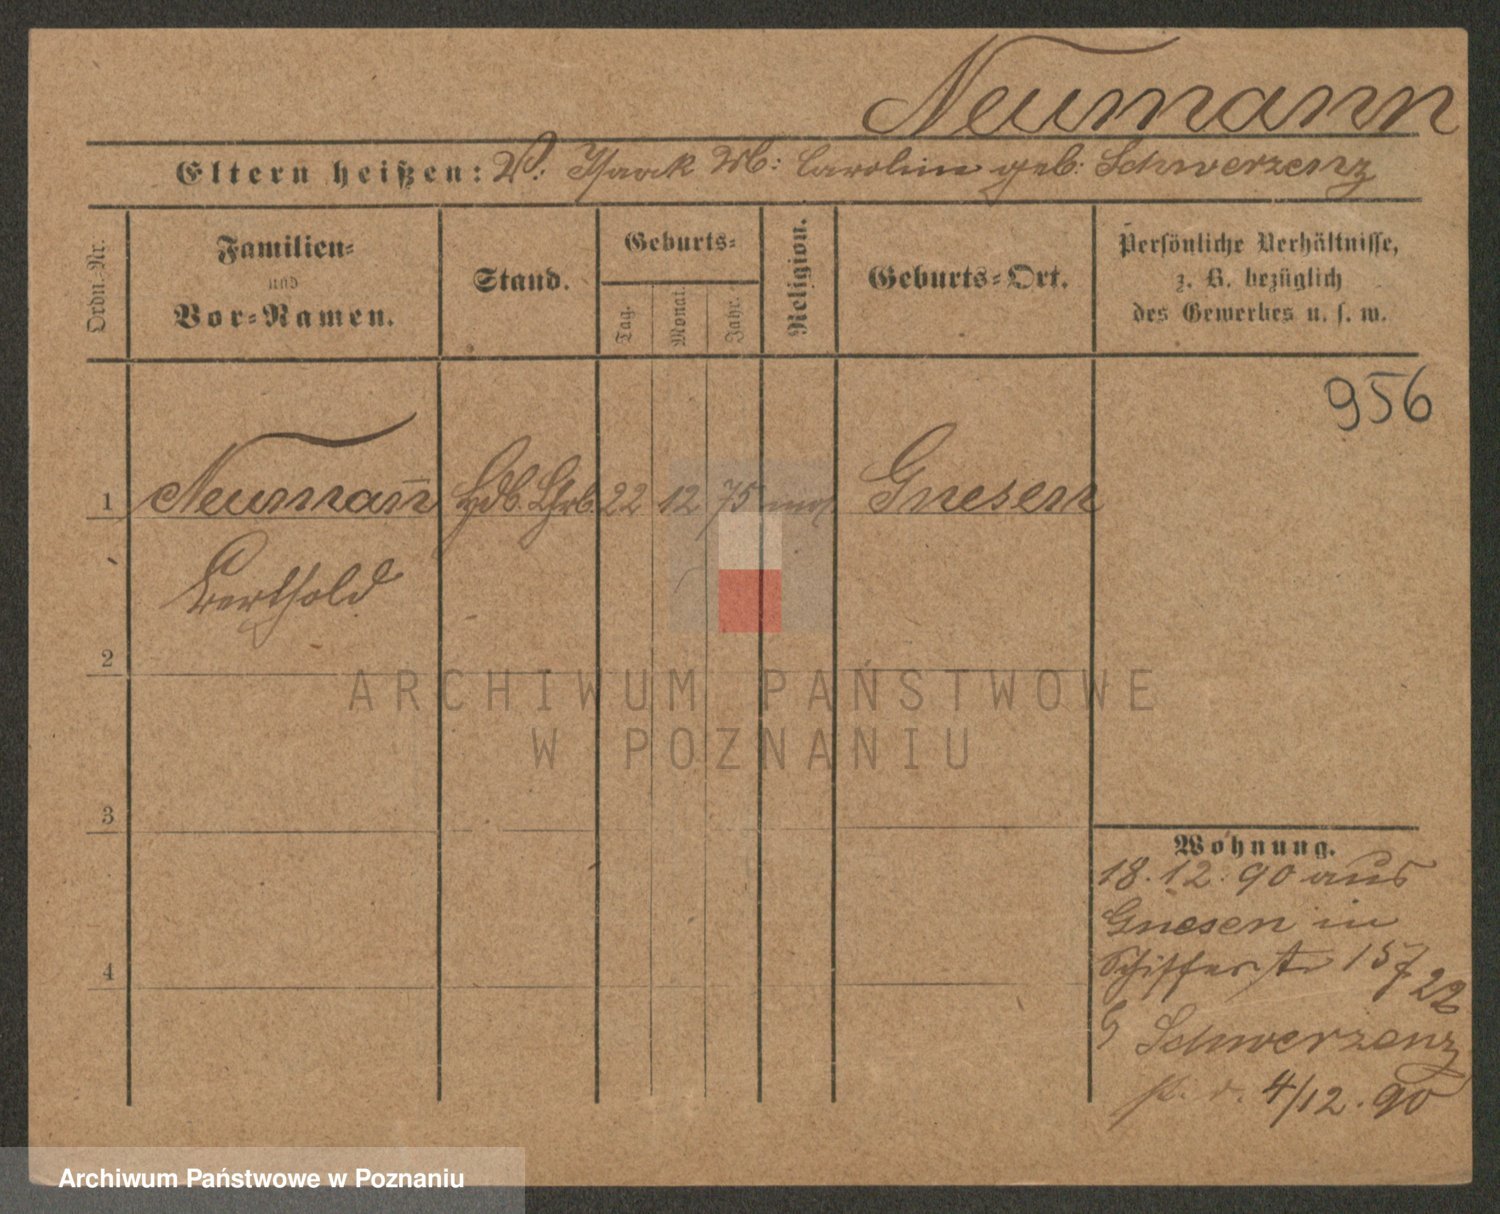 Neumann
Eltern heißen: V: Isaak M: Carolin geb: Schwerzenz
Ordn.-Nr.
Familien-
und
Vor-Namen.
Stand.
Geburts-
Tag.
Monat.
Jahr.
Religion.
Geburts-Ort.
Persönliche Verhältnisse,
z. B. bezüglich
des Gewerbes u. s. w.
956
1 Neumann̄ Hdl. Lhrl. 22 12 75 mos. Gnesen
Berthold
2
ARCHIWUM PAŃSTWOWE
W POZNANIU
3
4
Wohnung.
18.12.90 aus
Gnesen in
Schifferstr 15
22
Schwerzenz
4/12.90
Archiwum Państwowe w Poznaniu